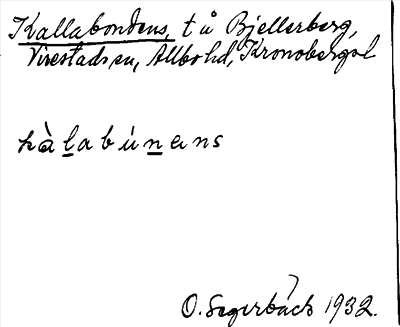 Kallabondens, t å Bjellerberg,
Virestads sn, Allbo hd, Kronobergs l
kàlabúnens
O. Sagerbäck 1932.